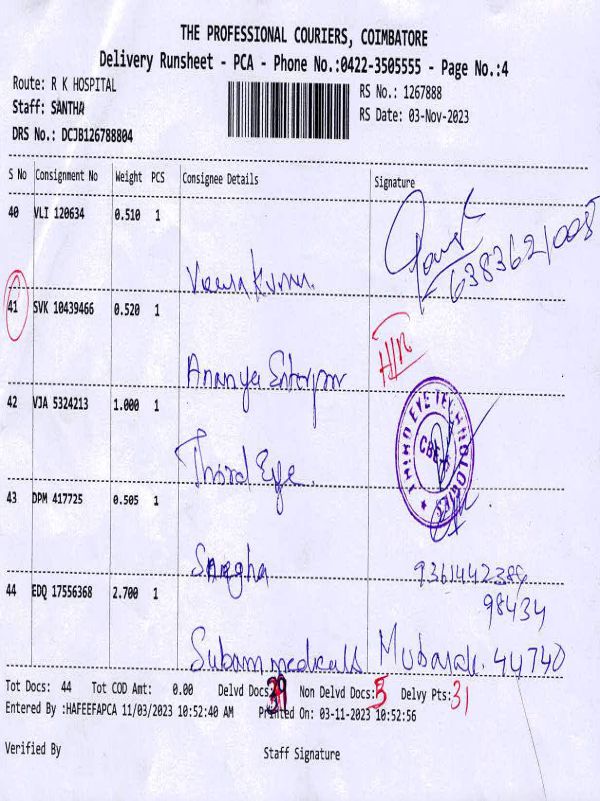 THE PROFESSIONAL COURIERS, COIMBATORE
Delivery Runsheet - PCA - Phone No.:0422-3505555 - Page No.:4
Route: R K HOSPITAL
RS No.: 1267888
Staff: SANTHA
RS Date: 03-Nov-2023
DRS No.: DCJB126788804
S No Consignment No Weight PCS Consignee Details Signature
40 VLI 120634 0.510 1
6383621008
41 SVK 10439466 0.520 1
Ananya
42 VJA 5324213 1.000 1
THIRD EYE TECHNOLOGIES
CBE
Third Eye.
43 DPM 417725 0.505 1
Sangha
44 EDQ 17556368 2.700 1
98434
Subam medicals Mubarak. 44740
Tot Docs: 44 Tot COD Amt: 0.00 Delvd Docs: 39 Non Delvd Docs: 5 Delvy Pts: 31
Entered By :HAFEEFAPCA 11/03/2023 10:52:40 AM Printed On: 03-11-2023 10:52:56
Verified By Staff Signature